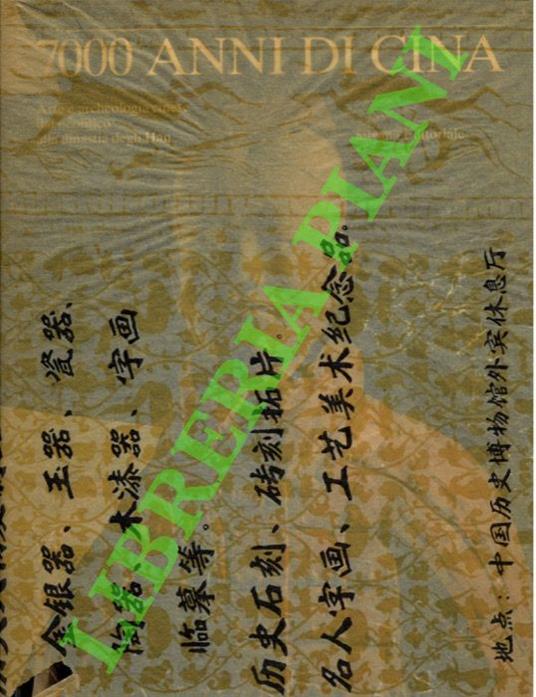 7000 ANNI DI CINA
Arte e archeologia cinese
dal neolitico
alla dinastia degli Han
Silvana Editoriale
LIBRERIA PIANI
金银器、玉器、瓷器、
陶器、木漆器、字画
临摹等。
历史石刻、砖刻拓片
名人字画、工艺美术纪念品。
地点：中国历史博物馆外宾休息厅